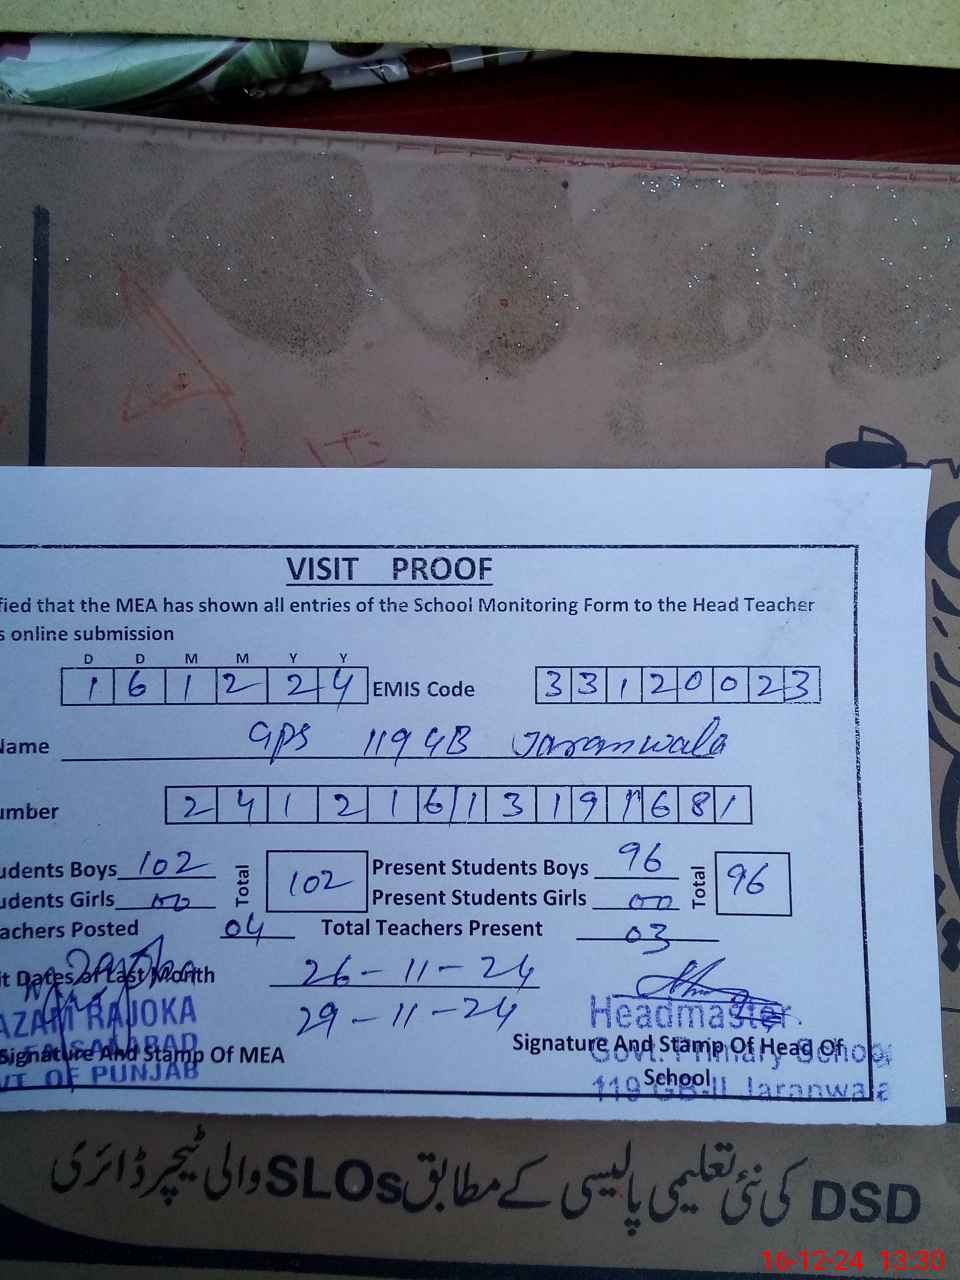 VISIT PROOF
fied that the MEA has shown all entries of the School Monitoring Form to the Head Teacher
s online submission
D D M M Y Y
1 6 1 2 2 4 EMIS Code 3 3 1 2 0 0 2 3
Name GPS 119 GB Jaranwala
umber 2 4 1 2 1 6 1 3 1 9 1 6 8 1
udents Boys 102 Total 102 Present Students Boys 96 Total 96
udents Girls 00 Present Students Girls 00
achers Posted 04 Total Teachers Present 03
it Dates of Last Month 26-11-24
29-11-24
AZAM RAJOKA
FAISALABAD
VT OF PUNJAB
Signature And Stamp Of MEA
Headmaster
Govt. Primary School
119 GB-II Jaranwala
Signature And Stamp Of Head Of
School
DSD کی نئی تعلیمی پالیسی کے مطابق SLOs والی ٹیچر ڈائری
16-12-24 13:30